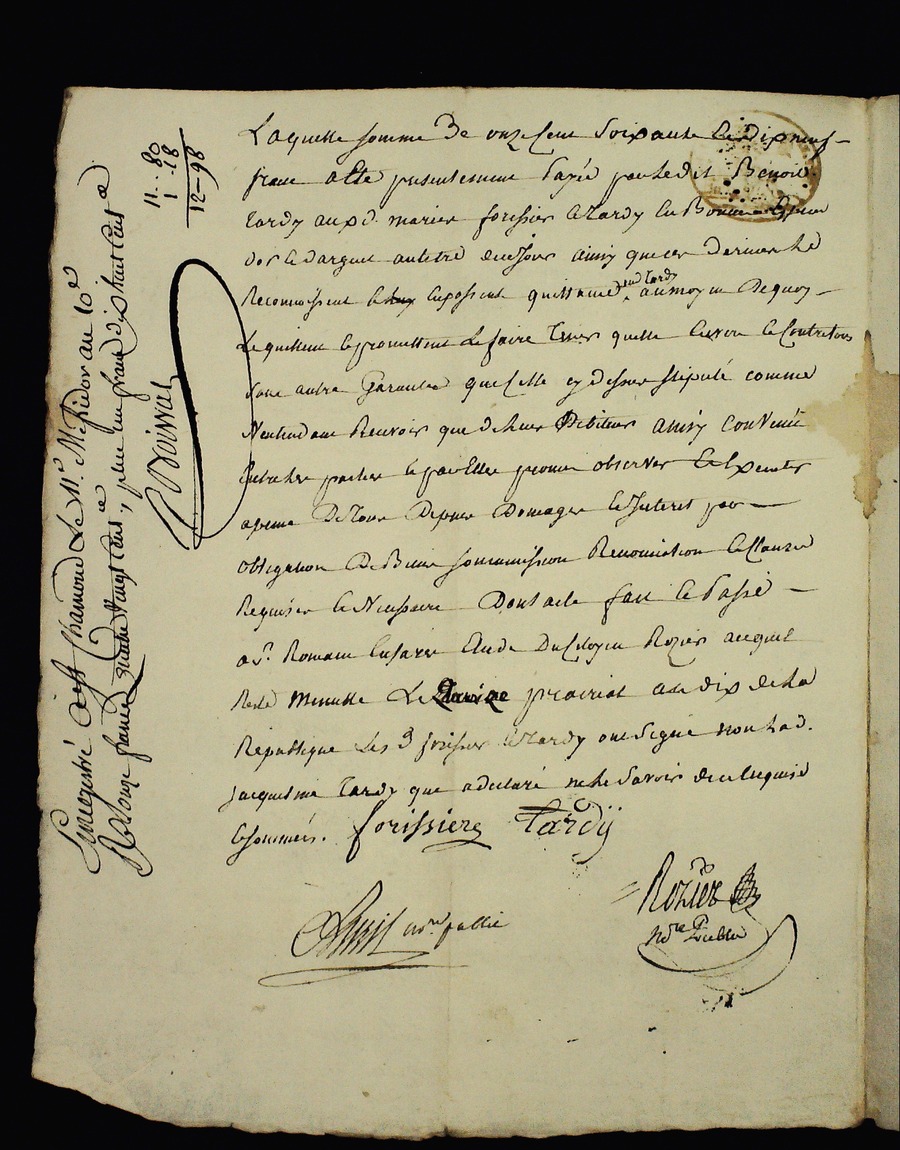 Laquelle somme de onze Cent Soixante Le Dix neuf
franc a Eté presentement Payée par Ledit Benoit
Tardy aux d. mariés forissier et Tardy En Bonnes Espèces
d'or Et d'argent au titre de ce jour ainsy que ces derniers Le
Reconnoissent Et En passent quittance aud Tardy au moyen De quoy
Le quittent Et promettent Le faire Tenir quitte Envers Et Contre tous
Sans autre Garantie que celle cy dessus Stipulé comme
N'entendant Recevoir que de Leur Debiteur ainsy convenu
Entre Les parties Et par Elles promis observer Et Executer
a peine De Tous Depens Domages Et Interet par
obligation De Biens soummission Renonciation Et Clauses
Requises Et Necessaire Dont acte fait Et Passé
a St. Romain En Jarez Etude Du Citoyen Rozier auquel
Reste Minutte Le Quinze prairial an dix de La
Republique Les d forissier Et Tardy ont signé non Lad.
Jacqueline Tardy qui a declaré ne Le Savoir de ce Enquise
Et sommée. forissiere Tardÿ
Rozier
no.re public
no.re Public
Enregistré à St Chamond Le 11e. Messidor an 10e
Rt onze francs quatre vingt cent es, plus un franc dix huit cent es
Boivin
11 .. 80
1 . 18
12 - 98